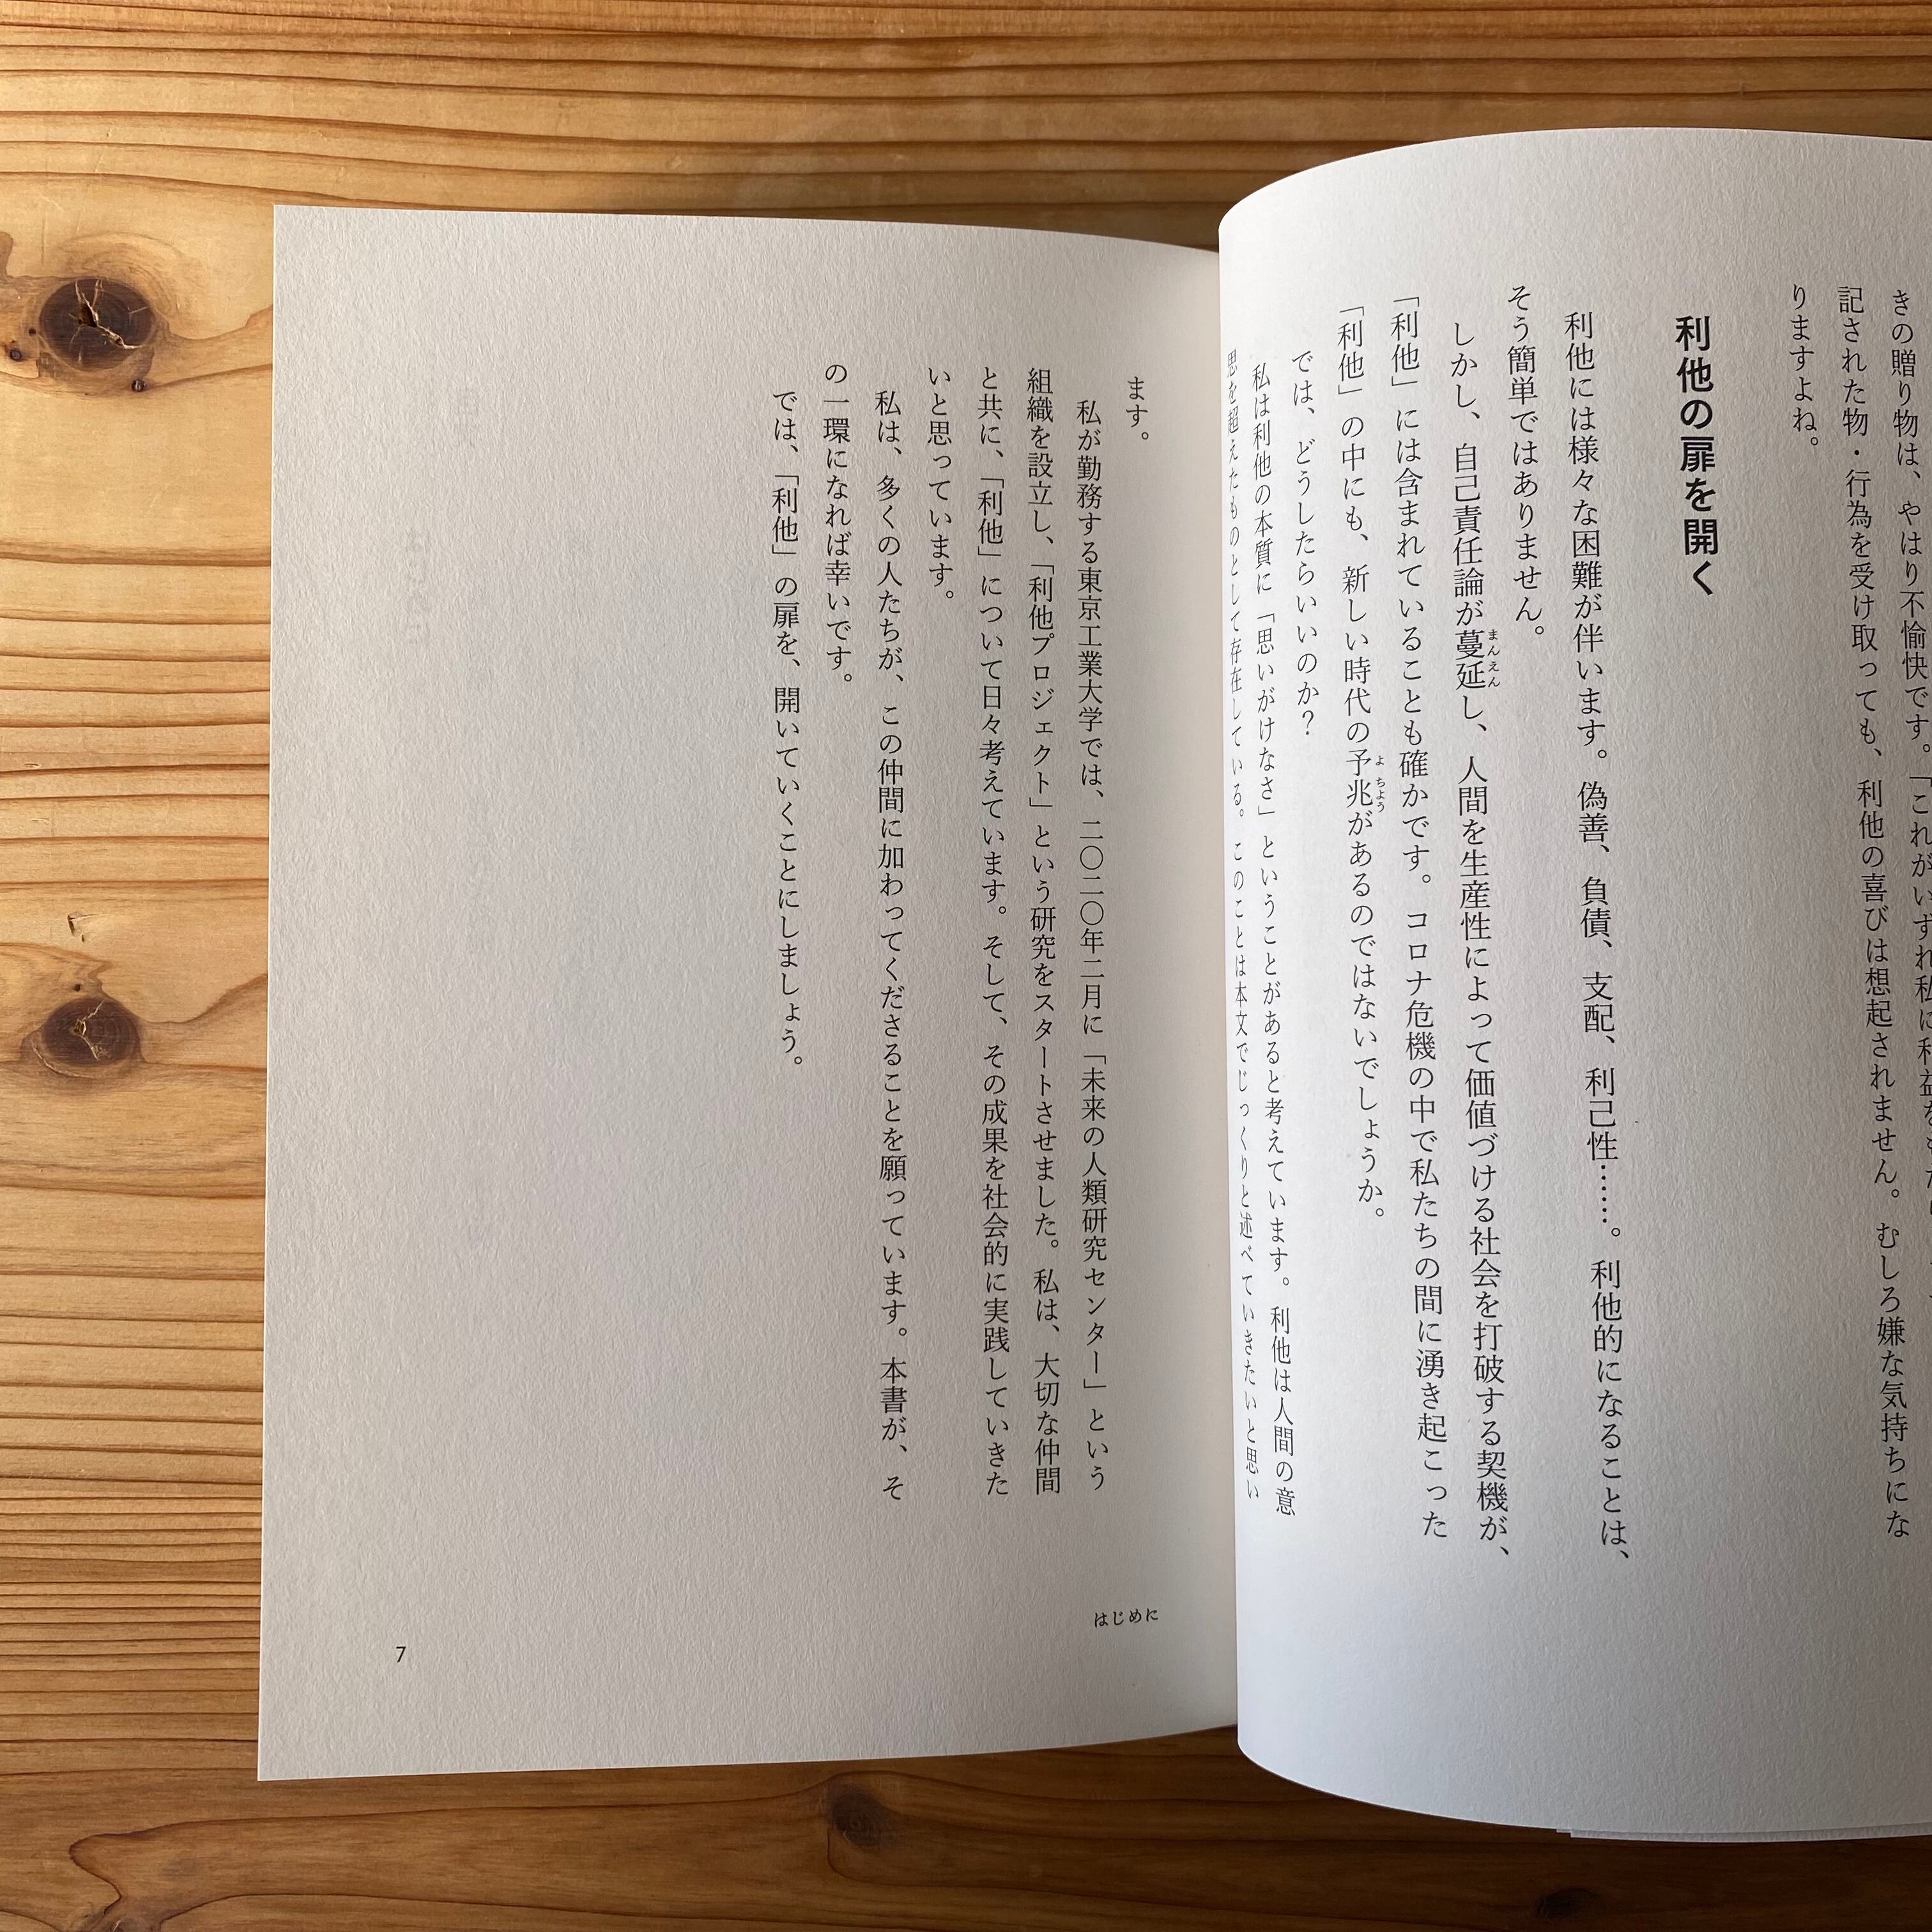 きの贈り物は、やはり不愉快です。「これがいずれ私に利益を
記された物・行為を受け取っても、利他の喜びは想起されません。むしろ嫌な気持ちにな
りますよね。
利他の扉を開く
利他には様々な困難が伴います。偽善、負債、支配、利己性……。利他的になることは、
そう簡単ではありません。
しかし、自己責任論が蔓延し、人間を生産性によって価値づける社会を打破する契機が、
まんえん
「利他」には含まれていることも確かです。コロナ危機の中で私たちの間に湧き起こった
「利他」の中にも、新しい時代の予兆があるのではないでしょうか。
よちょう
では、どうしたらいいのか?
私は利他の本質に「思いがけなさ」ということがあると考えています。利他は人間の意
思を超えたものとして存在している。このことは本文でじっくりと述べていきたいと思い
ます。
私が勤務する東京工業大学では、二〇二〇年二月に「未来の人類研究センター」という
組織を設立し、「利他プロジェクト」という研究をスタートさせました。私は、大切な仲間
と共に、「利他」について日々考えています。そして、その成果を社会的に実践していきた
いと思っています。
私は、多くの人たちが、この仲間に加わってくださることを願っています。本書が、そ
の一環になれば幸いです。
では、「利他」の扉を、開いていくことにしましょう。
はじめに
7